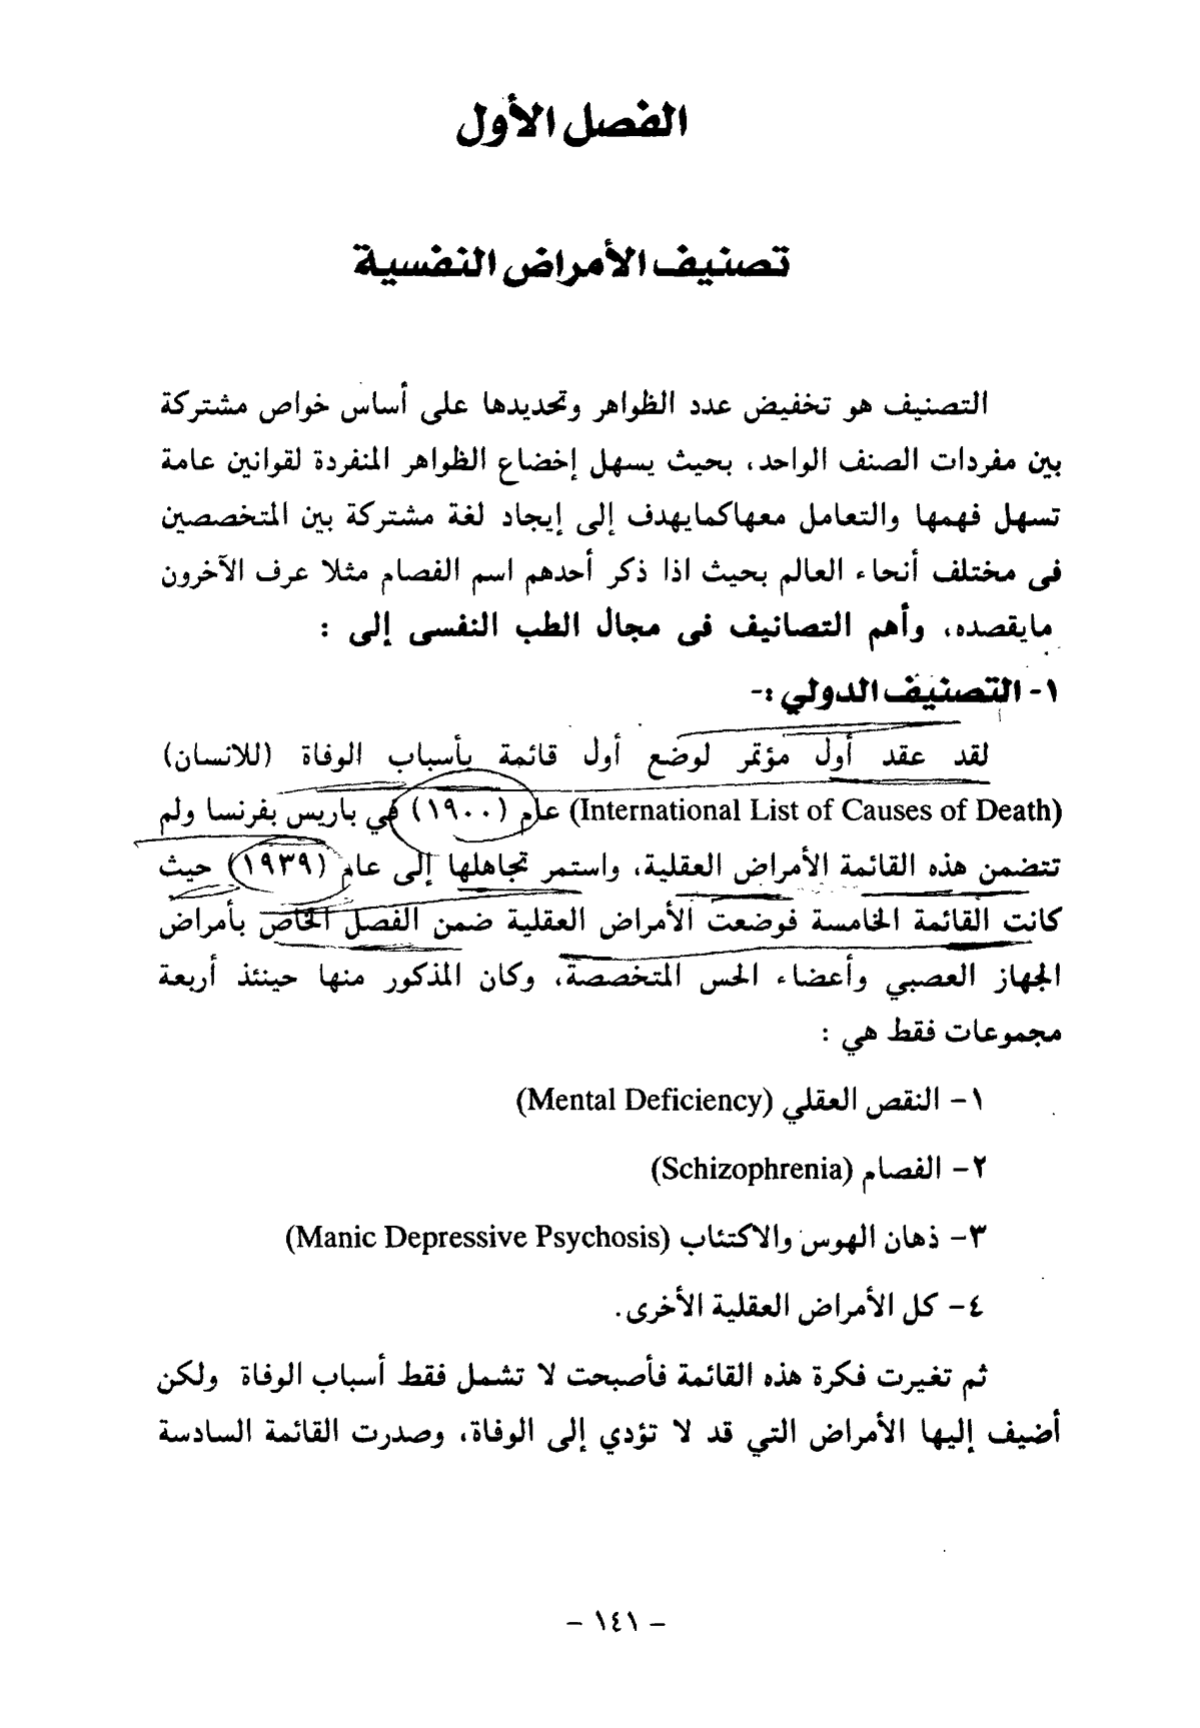 الفصل الأول
تصنيف الأمراض النفسية
التصنيف هو تخفيض عدد الظواهر وتحديدها على أساس خواص مشتركة
بين مفردات الصنف الواحد، بحيث يسهل إخضاع الظواهر المنفردة لقوانين عامة
تسهل فهمها والتعامل معهاكمايهدف إلى إيجاد لغة مشتركة بين المتخصصين
فى مختلف أنحاء العالم بحيث اذا ذكر أحدهم اسم الفصام مثلا عرف الآخرون
مايقصده، وأهم التصانيف فى مجال الطب النفسى إلى :
١- التصنيف الدولي :-
لقد عقد أول مؤتمر لوضع أول قائمة بأسباب الوفاة (للانسان)
(International List of Causes of Death) عام (١٩٠٠) في باريس بفرنسا ولم
تتضمن هذه القائمة الأمراض العقلية، واستمر تجاهلها إلى عام (١٩٣٩) حيث
كانت القائمة الخامسة فوضعت الأمراض العقلية ضمن الفصل الخاص بأمراض
الجهاز العصبي وأعضاء الحس المتخصصة، وكان المذكور منها حينئذ أربعة
مجموعات فقط هي :
١- النقص العقلي (Mental Deficiency)
٢- الفصام (Schizophrenia)
٣- ذهان الهوس والاكتئاب (Manic Depressive Psychosis)
٤- كل الأمراض العقلية الأخرى.
ثم تغيرت فكرة هذه القائمة فأصبحت لا تشمل فقط أسباب الوفاة ولكن
أضيف إليها الأمراض التي قد لا تؤدي إلى الوفاة، وصدرت القائمة السادسة
- ١٤١ -